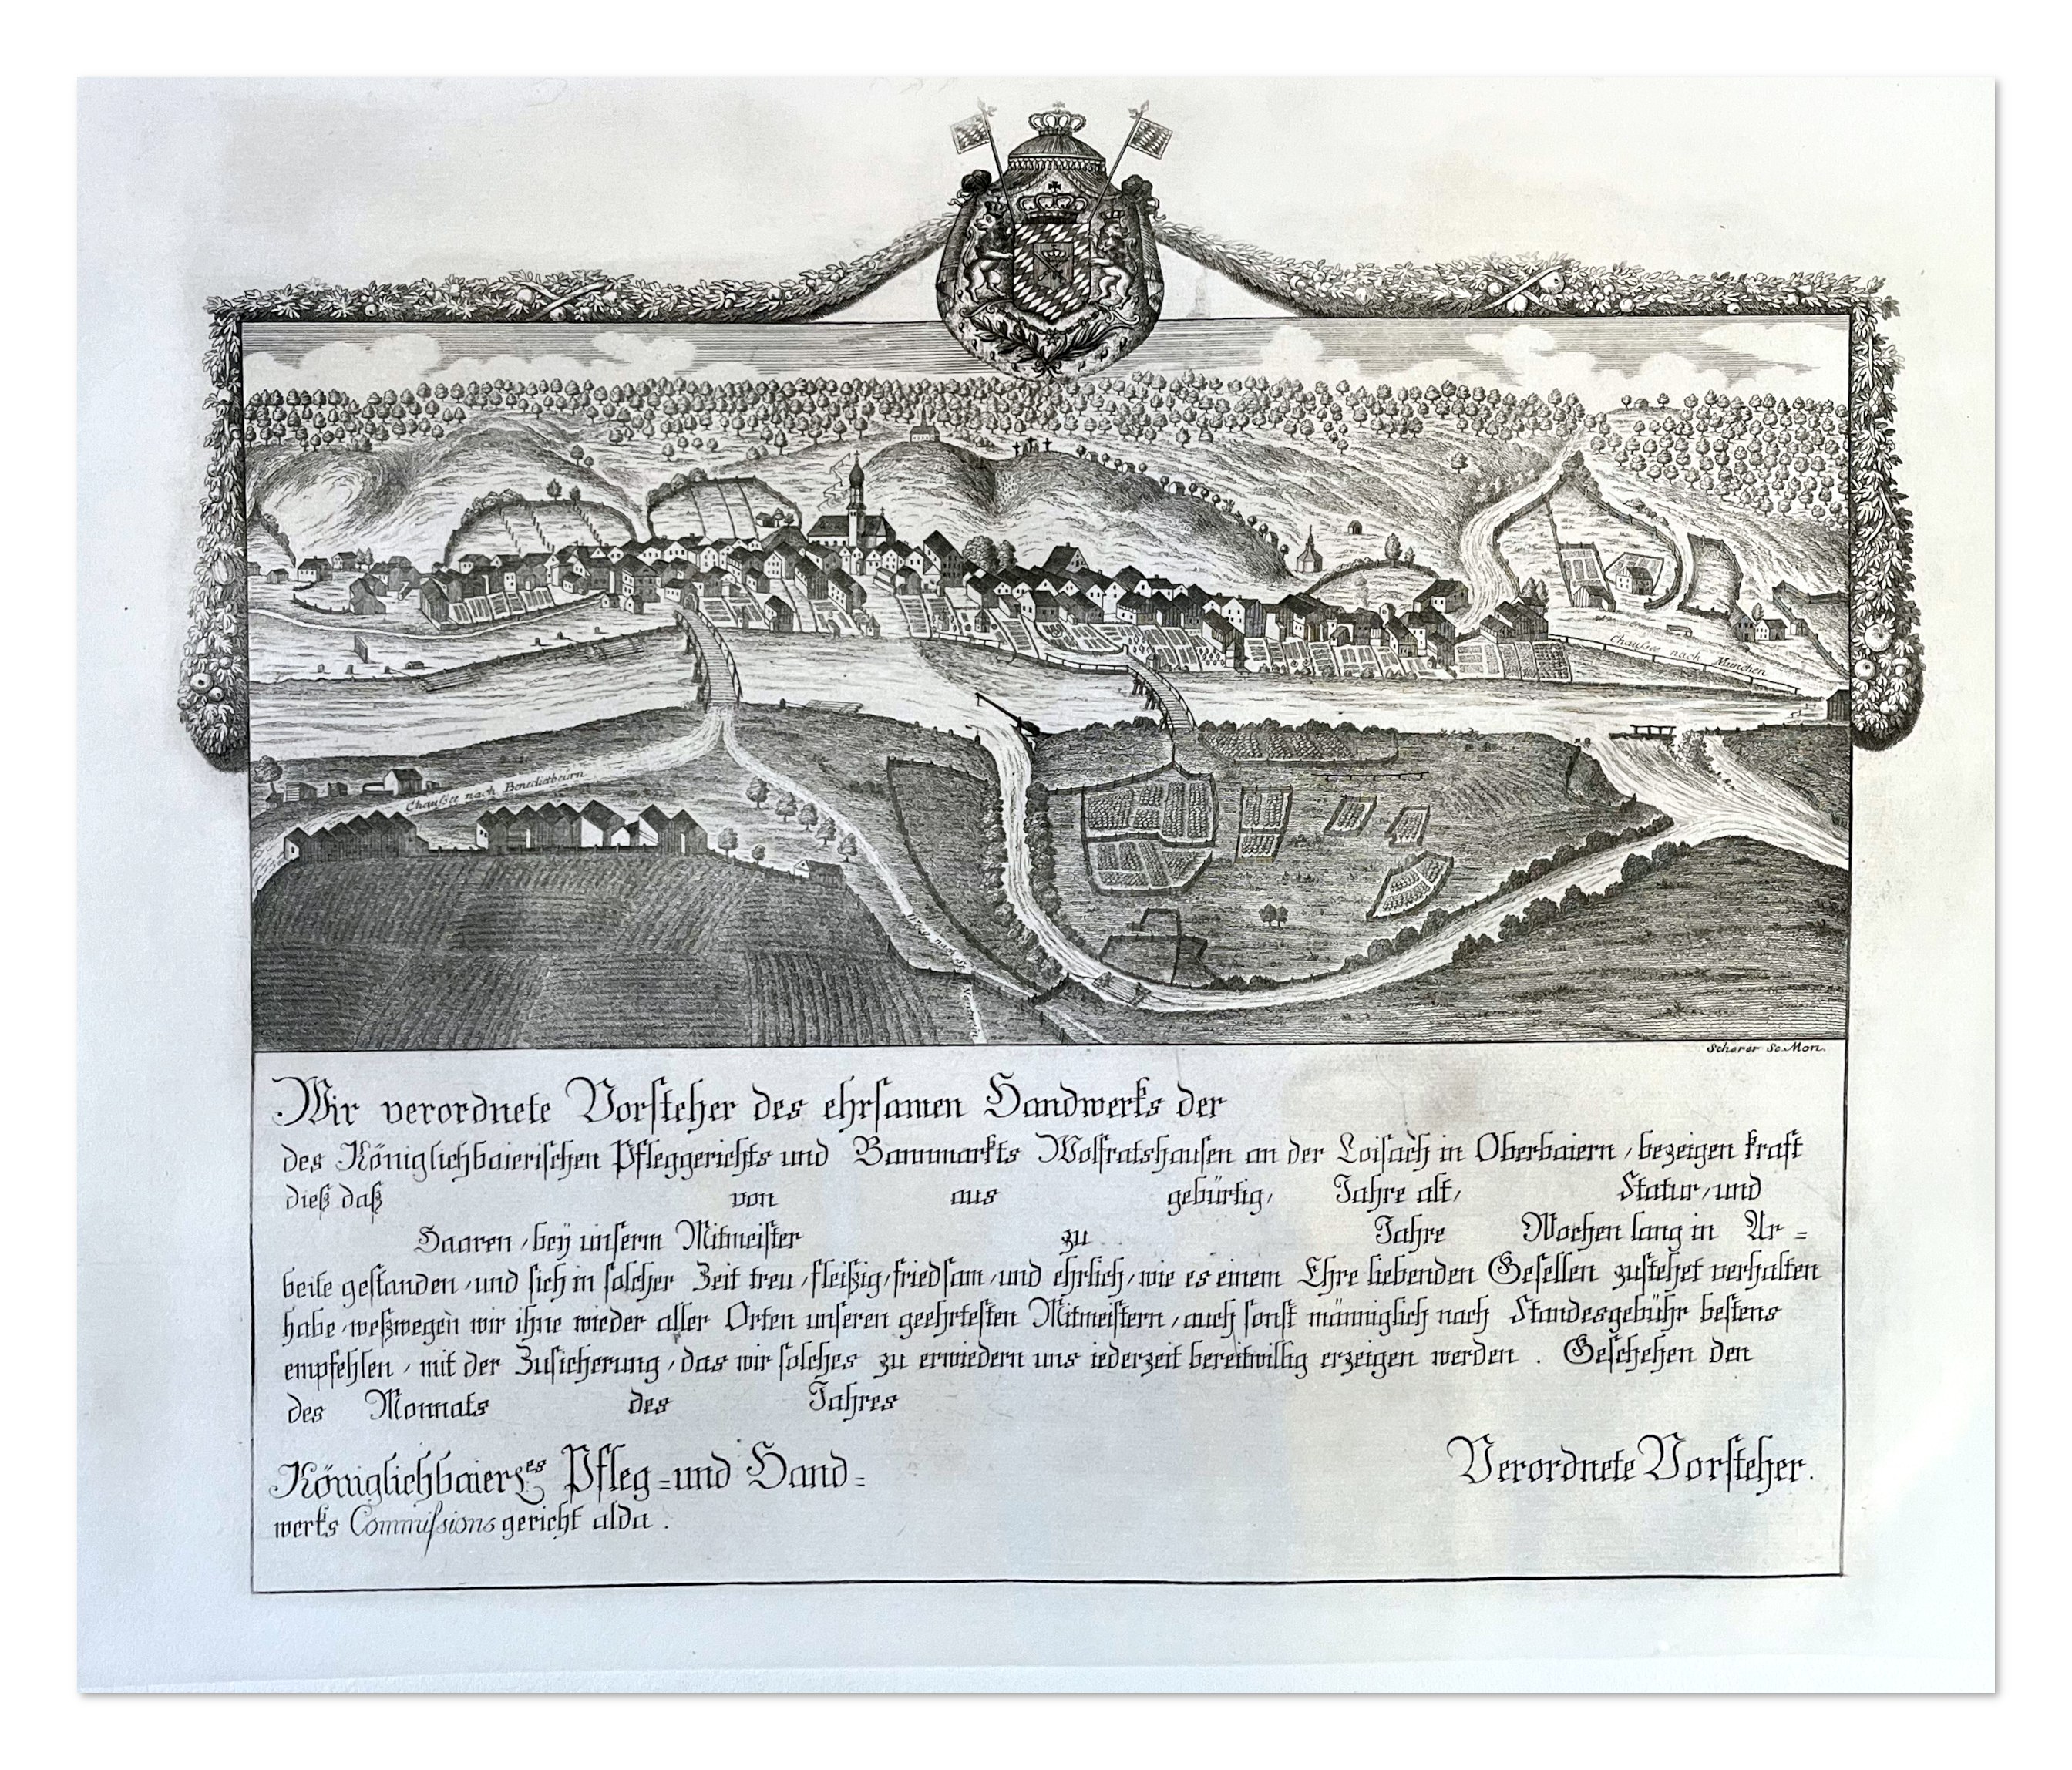 Chaußée nach München
Chaußée nach Benedictbeurn
Weeg nach
Scherer Sc. Mon.
Wir verordnete Vorsteher des ehrsamen Handwerks der
des Königlichbaierischen Pfleggerichts und Bannmarkts Wolfratshausen an der Loisach in Oberbaiern, bezeigen kraft
dieß daß von aus gebürtig, Jahre alt, Statur, und
Haaren, bey unserm Mitmeister zu Jahre Wochen lang in Ar=
beite gestanden, und sich in solcher Zeit treu, fleißig, friedsam, und ehrlich, wie es einem Ehre liebenden Gesellen zustehet verhalten
habe, weßwegen wir ihne wieder aller Orten unseren geehrtesten Mitmeistern, auch sonst männiglich nach Standesgebühr bestens
empfehlen, mit der Zusicherung, das wir solches zu erwiedern uns iederzeit bereitwillig erzeigen werden. Geschehen den
des Monnats des Jahres
Königlichbaier<sup>es</sup> Pfleg= und Hand=
werks Commissions gericht alda.
Verordnete Vorsteher.